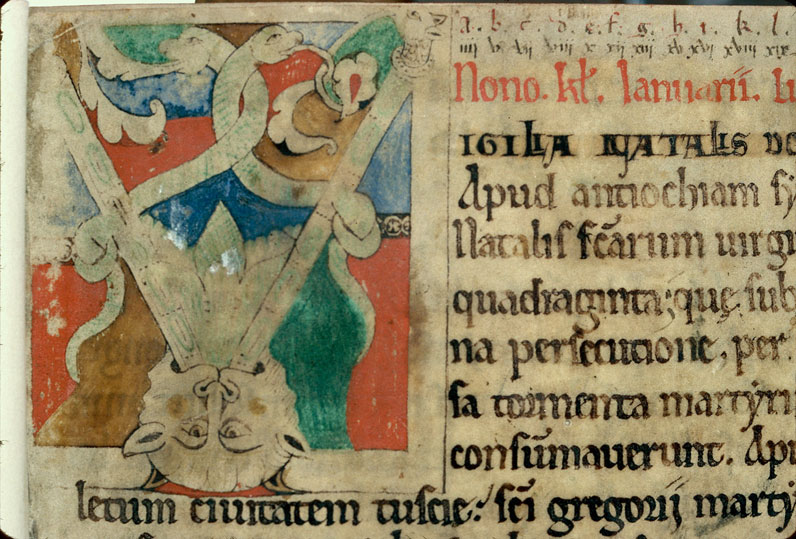 a. b. c. d. e. f. g. h. i. k. l.
iiii v vii viii x xii xiii xv xvi xviii xix
Nono. kł. Ianuarii. lu
VIGILIA NATALIS DO
Apud antiochiam sy
Natalis sc̄arum uirgi
quadraginta; quę sub
na persecutione. per
sa tormenta martyri
consūmauerunt. Apu
letum ciuitatem tuscię: sc̄i gregorii marty